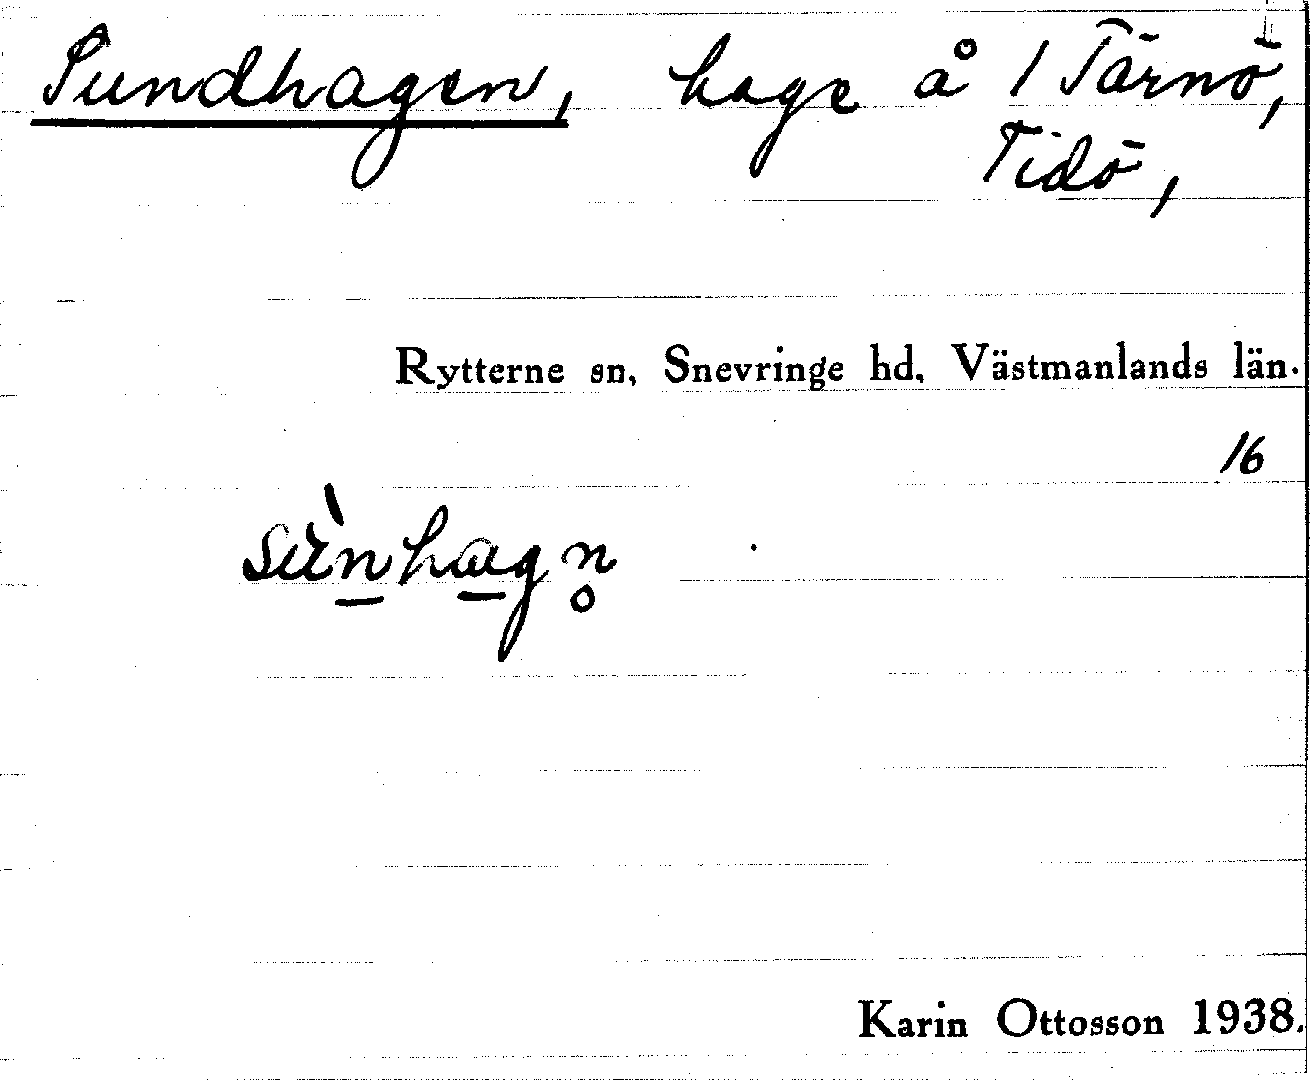 Sundhagen, hage å 1 Tärnö,
Tidö,
Rytterne sn, Snevringe hd, Västmanlands län.
16
sùn̲ha̲gn̥
Karin Ottosson 1938.